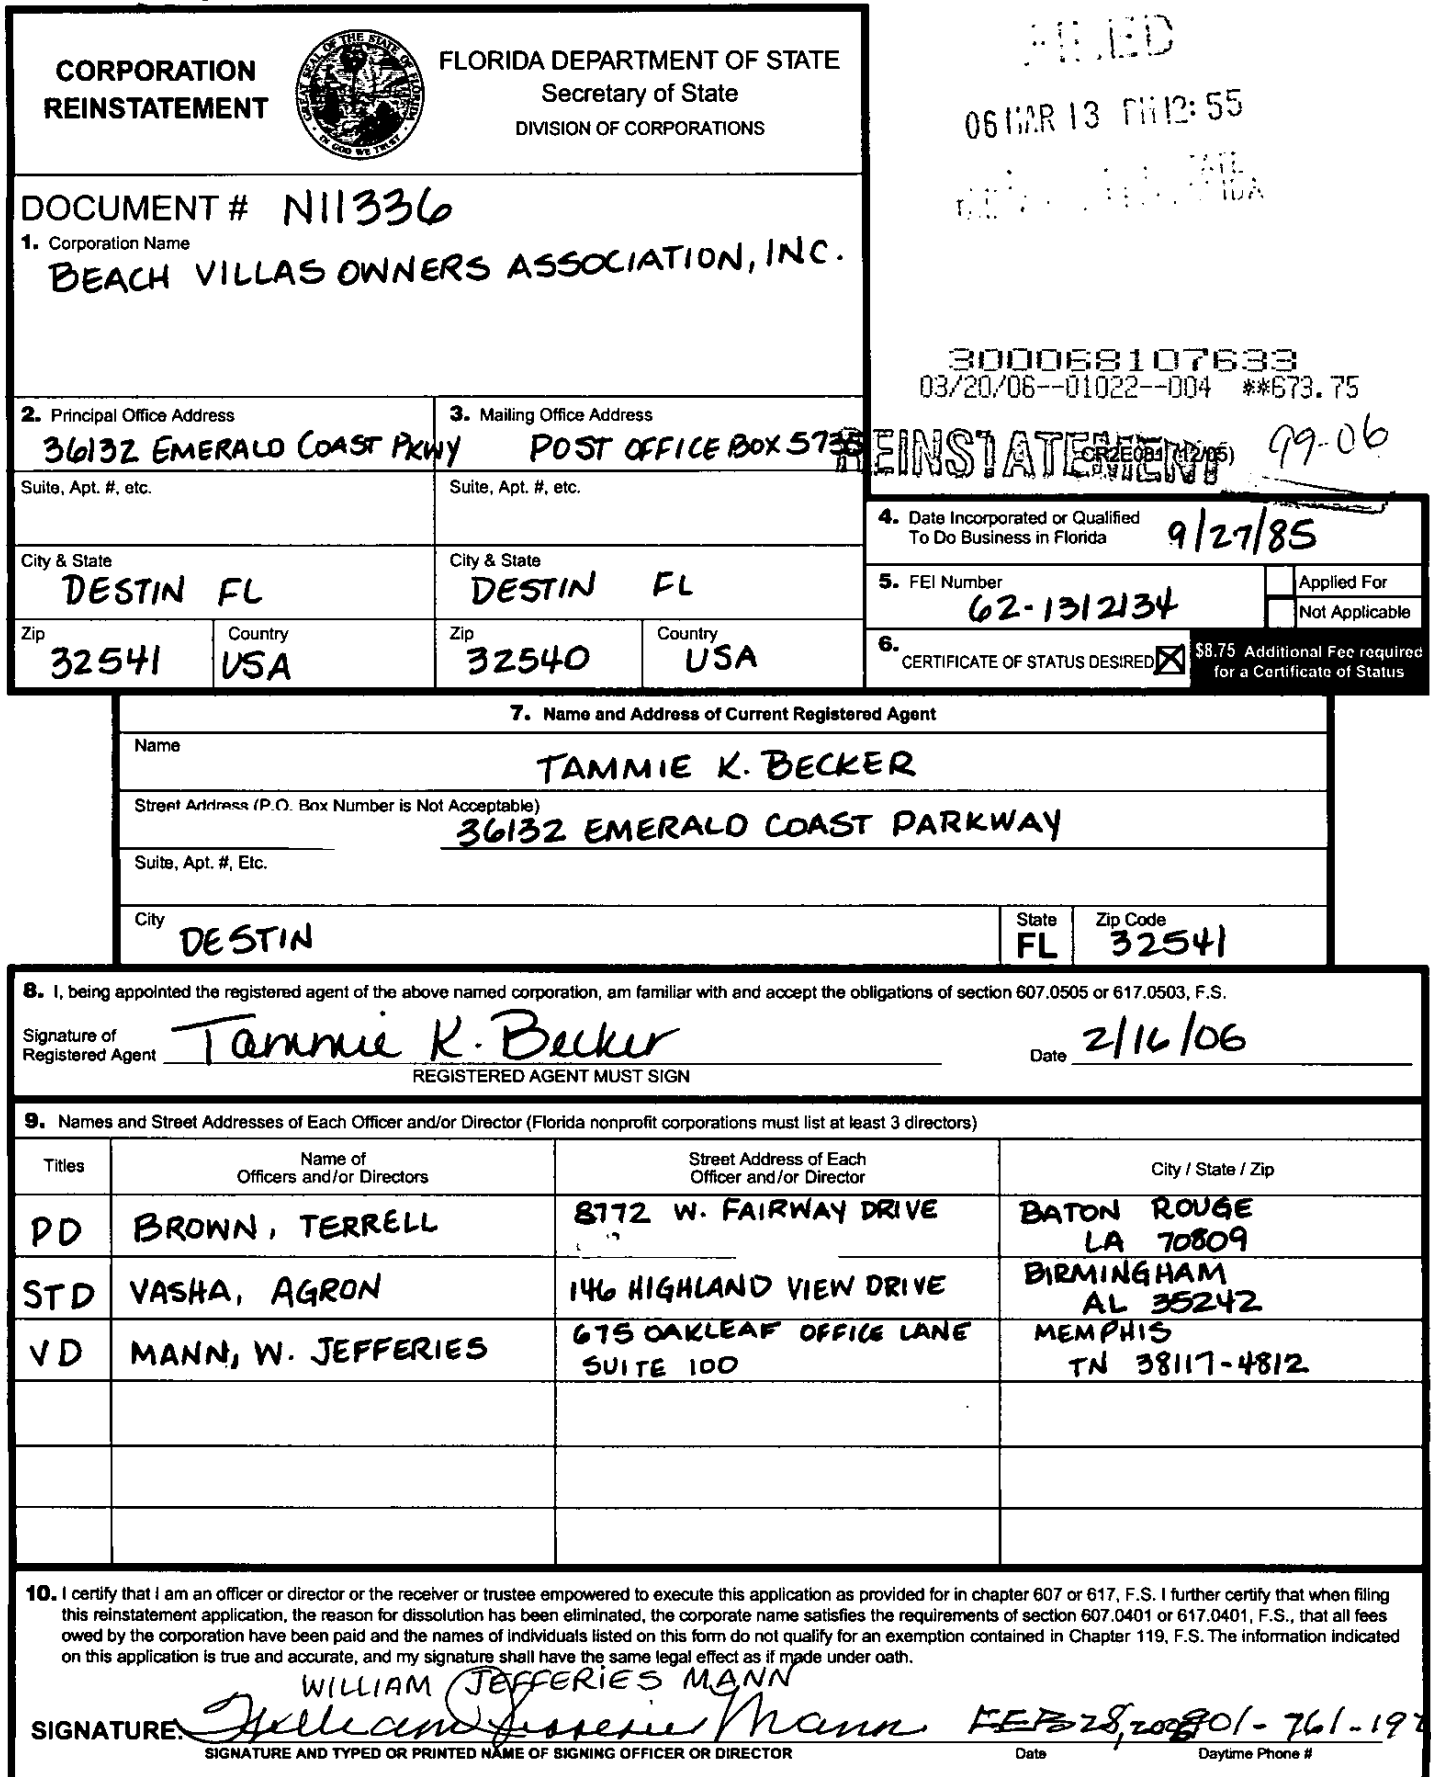 CORPORATION
REINSTATEMENT
FLORIDA DEPARTMENT OF STATE
Secretary of State
DIVISION OF CORPORATIONS
GREAT SEAL OF THE STATE OF FLORIDA
IN GOD WE TRUST
FILED
06 MAR 13 PM 12:55
DOCUMENT # N11336
1. Corporation Name
BEACH VILLAS OWNERS ASSOCIATION, INC.
300068107633
03/20/06--01022--004 **673.75
2. Principal Office Address
36132 EMERALD COAST PKWY
3. Mailing Office Address
POST OFFICE BOX 5735
REINSTATEMENT 99-06
CR2E081 (12/05)
Suite, Apt. #, etc.
Suite, Apt. #, etc.
4. Date Incorporated or Qualified
To Do Business in Florida 9/27/85
City & State
DESTIN FL
City & State
DESTIN FL
5. FEI Number
62-1312134
Applied For
Not Applicable
Zip
32541
Country
USA
Zip
32540
Country
USA
6. CERTIFICATE OF STATUS DESIRED
$8.75 Additional Fee required
for a Certificate of Status
7. Name and Address of Current Registered Agent
Name
TAMMIE K. BECKER
Street Address (P.O. Box Number is Not Acceptable)
36132 EMERALD COAST PARKWAY
Suite, Apt. #, Etc.
City
DESTIN
State
FL
Zip Code
32541
8. I, being appointed the registered agent of the above named corporation, am familiar with and accept the obligations of section 607.0505 or 617.0503, F.S.
Signature of
Registered Agent Tammie K. Becker
Date 2/16/06
REGISTERED AGENT MUST SIGN
9. Names and Street Addresses of Each Officer and/or Director (Florida nonprofit corporations must list at least 3 directors)
Titles
Name of
Officers and/or Directors
Street Address of Each
Officer and/or Director
City / State / Zip
PD
BROWN, TERRELL
8772 W. FAIRWAY DRIVE
BATON ROUGE
LA 70809
STD
VASHA, AGRON
146 HIGHLAND VIEW DRIVE
BIRMINGHAM
AL 35242
VD
MANN, W. JEFFERIES
675 OAKLEAF OFFICE LANE
SUITE 100
MEMPHIS
TN 38117-4812
10. I certify that I am an officer or director or the receiver or trustee empowered to execute this application as provided for in chapter 607 or 617, F.S. I further certify that when filing
this reinstatement application, the reason for dissolution has been eliminated, the corporate name satisfies the requirements of section 607.0401 or 617.0401, F.S., that all fees
owed by the corporation have been paid and the names of individuals listed on this form do not qualify for an exemption contained in Chapter 119, F.S. The information indicated
on this application is true and accurate, and my signature shall have the same legal effect as if made under oath.
WILLIAM JEFFERIES MANN
SIGNATURE: William Jefferies Mann FEB 28, 2006 901-761-192
SIGNATURE AND TYPED OR PRINTED NAME OF SIGNING OFFICER OR DIRECTOR
Date
Daytime Phone #